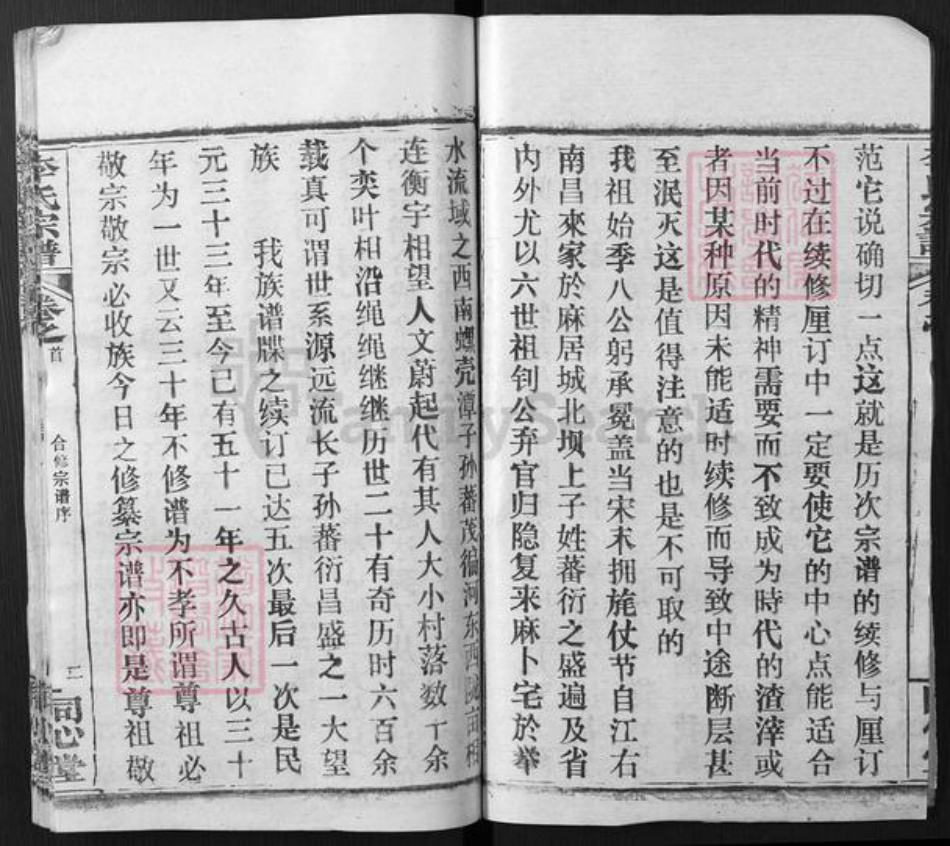 范它说确切一点这就是历次宗谱的续修与厘订
不过在续修厘订中一定要使它的中心点能适合
当前时代的精神需要而不致成为時代的渣滓或
者因某种原因未能适时续修而导致中途断层甚
至泯灭这是值得注意的也是不可取的
我祖始季八公躬承冕盖当宋末拥旄仗节自江右
南昌來家於麻居城北坝上子姓蕃衍之盛遍及省
内外尤以六世祖钊公弃官归隐复来麻卜宅於举
水流域之西南螺壳潭子孙蕃茂徧河东西
连衡宇相望人文蔚起代有其人大小村落数十余
个奕叶相沿绳绳继继历世二十有奇历时六百余
载真可谓世系源远流长子孙蕃衍昌盛之一大望
族 我族谱牒之续订已达五次最后一次是民
元三十三年至今已有五十一年之久古人以三十
年为一世又云三十年不修谱为不孝所谓尊祖必
敬宗敬宗必收族今日之修纂宗谱亦即是尊祖敬
李氏宗谱 卷之首 合修宗谱序 二 同心堂
FamilySearch